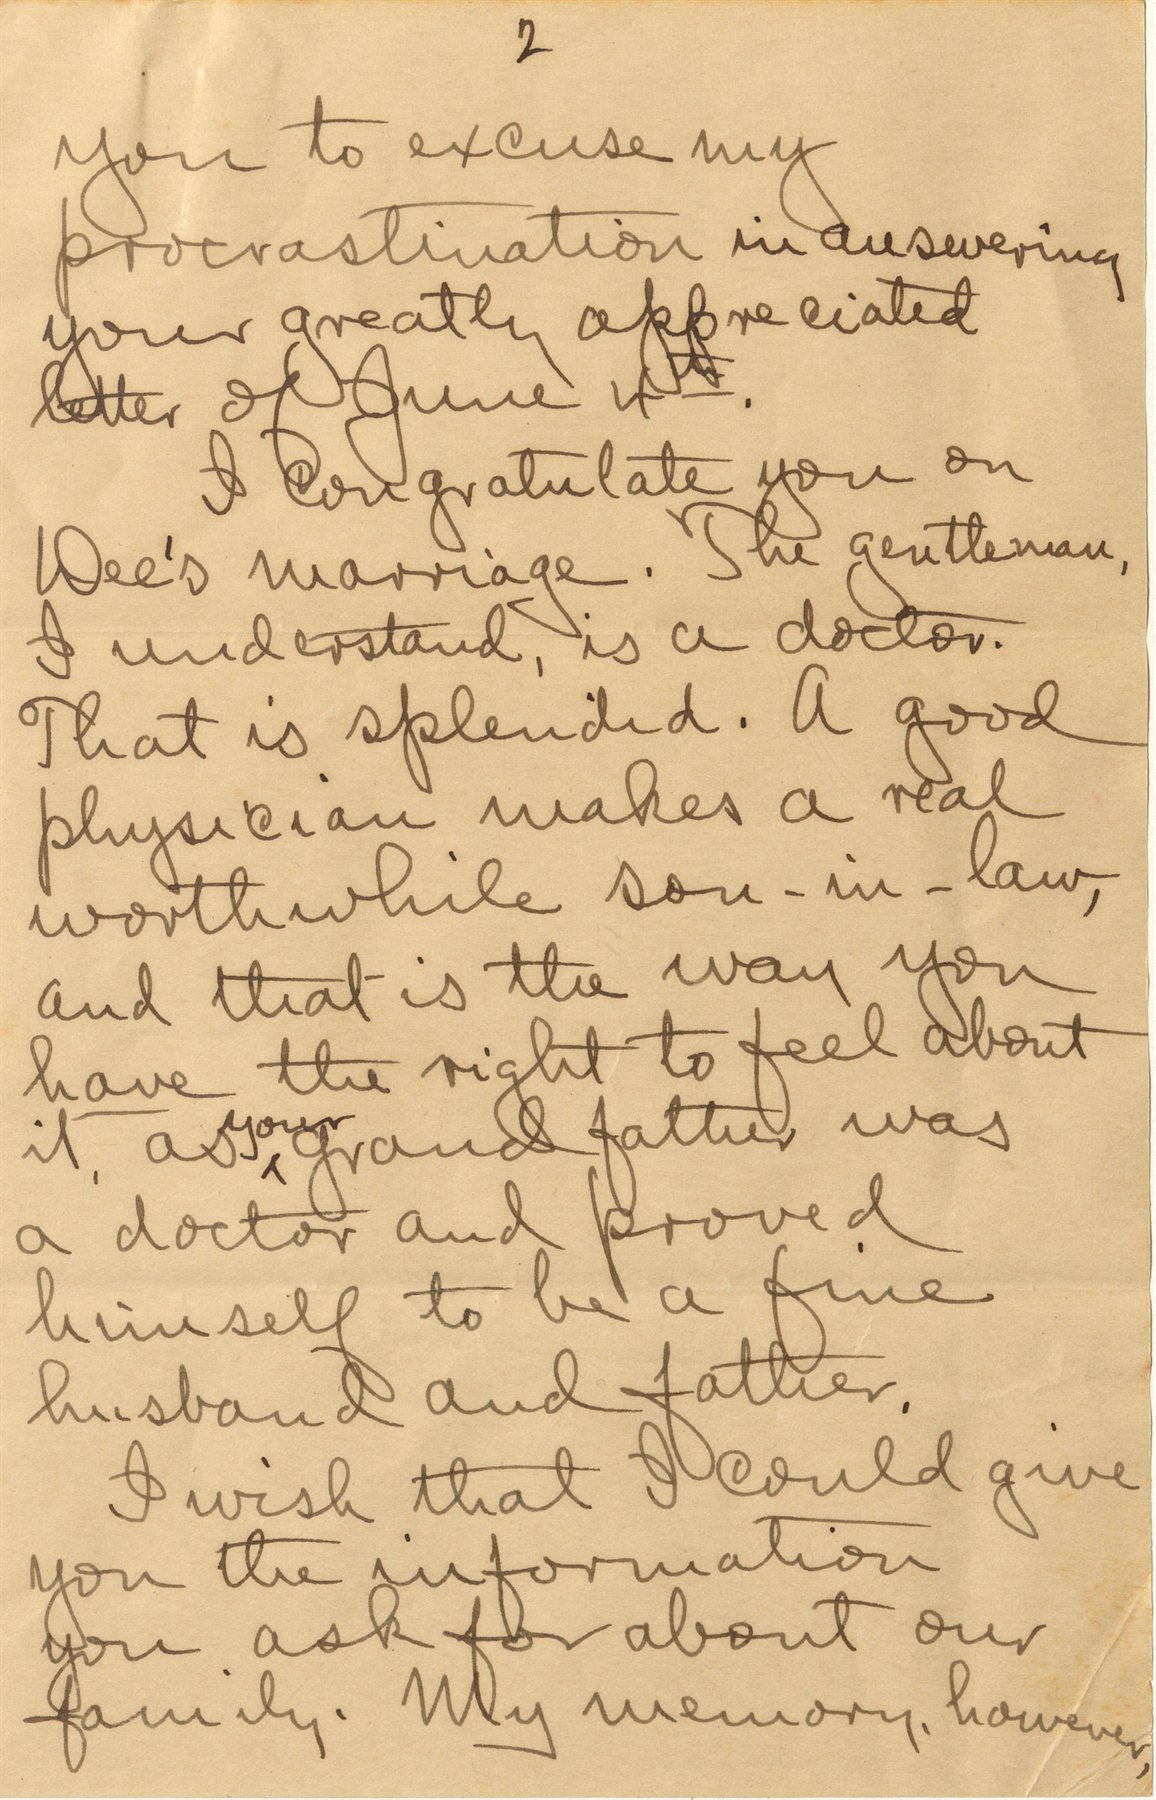 2
you to excuse my
procrastination in answering
your greatly appreciated
letter of June 4th.
I congratulate you on
Dee's marriage. The gentleman,
I understand, is a doctor.
That is splendid. A good
physician makes a real
worthwhile son-in-law,
and that is the way you
have the right to feel about
it, as your grandfather was
a doctor and proved
himself to be a fine
husband and father.
I wish that I could give
you the information
you ask for about our
family. My memory, however,